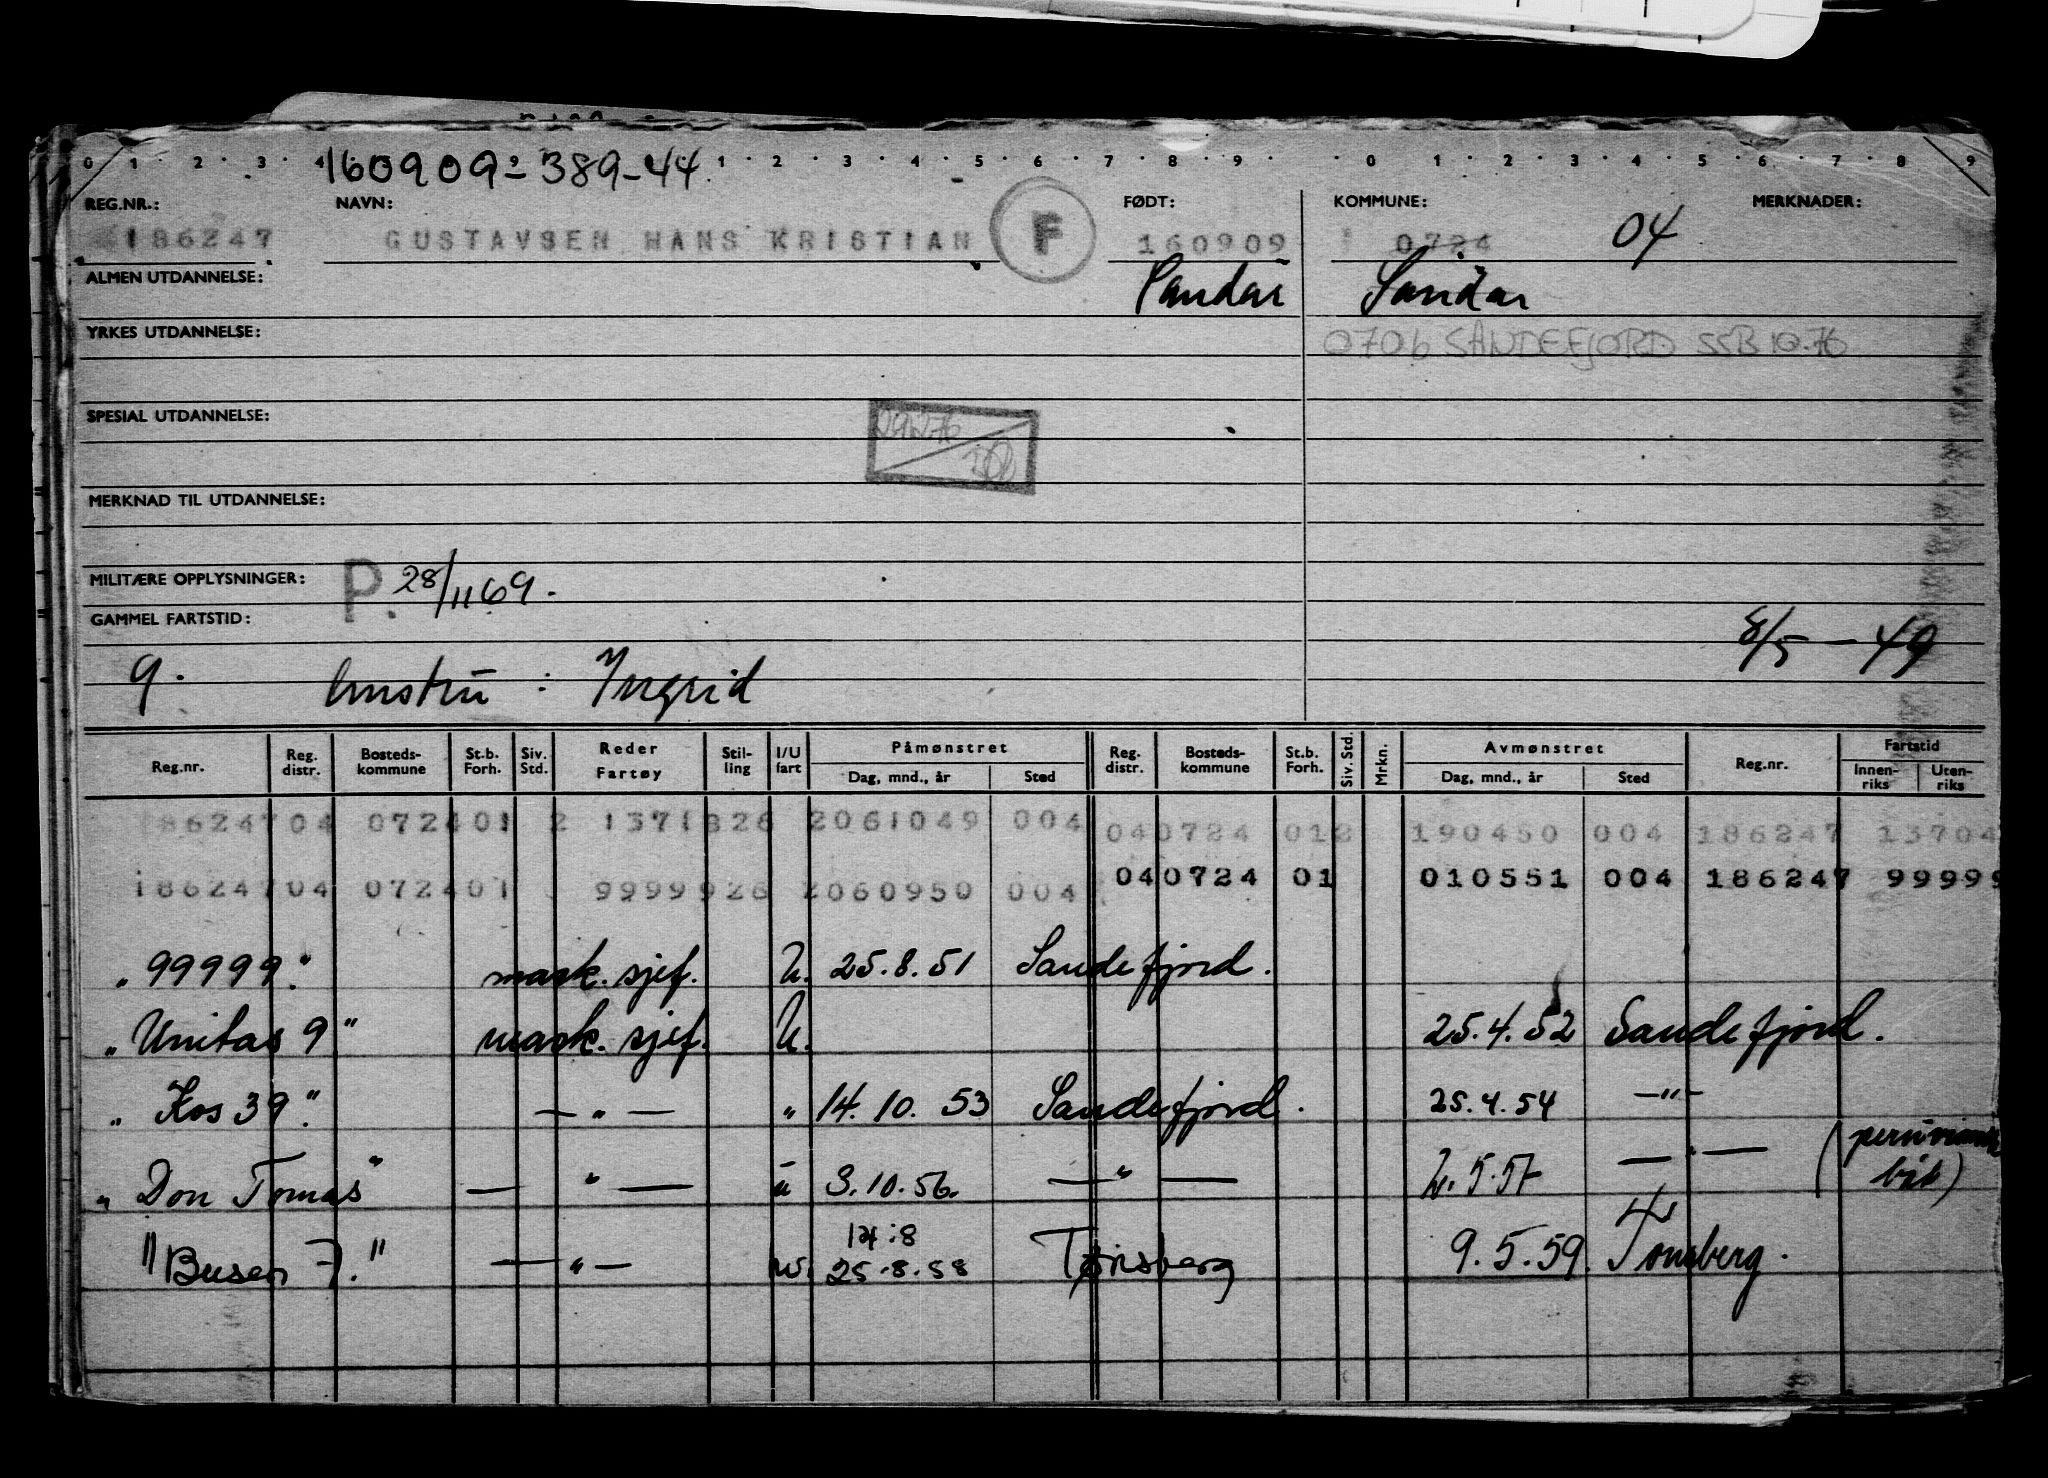 0 1 2 3 4 9 1 2 3 4 5 6 7 8 9 0 1 2 3 4 5 6 7 8 9
160909-389-44
REG.NR.: NAVN: FØDT: KOMMUNE: MERKNADER:
186247 GUSTAVSEN HANS KRISTIAN F 160909 0724 04
ALMEN UTDANNELSE: Sandar Sandar
YRKES UTDANNELSE: 0706 SANDEFJORD SSB 10.76
SPESIAL UTDANNELSE:
MERKNAD TIL UTDANNELSE:
MILITÆRE OPPLYSNINGER: P. 28/11 69.
GAMMEL FARTSTID: 8/5 - 49
9. hustru : Yngrid
Reg.nr. Reg. distr. Bosteds-kommune St.b. Forh. Siv. Std. Reder Fartøy Stil-ling I/U fart Påmønstret Dag, mnd., år Sted Reg. distr. Bosteds-kommune St.b. Forh. Siv. Std. Mrkn. Avmønstret Dag, mnd., år Sted Reg.nr. Fartstid Innen-riks Uten-riks
18624704 072401 2 1371826 2061049 004 040724 012 190450 004 186247 13704
18624704 072401 9999926 2060950 004 040724 01 010551 004 186247 99999
"99999." mask. sjef. U. 25.8.51 Sandefjord.
"Unitas 9" mask. sjef. U. 25.4.52 Sandefjord.
"Kos 39." — " — " 14.10.53 Sandefjord. 25.4.54 —"—
"Don Tomas" — " — u 3.10.56. — " — 2.5.57 — " — (peruviansk båt)
14.8
"Busen 7." — " — u. 25.8.58 Tønsberg 9.5.59. Tønsberg.